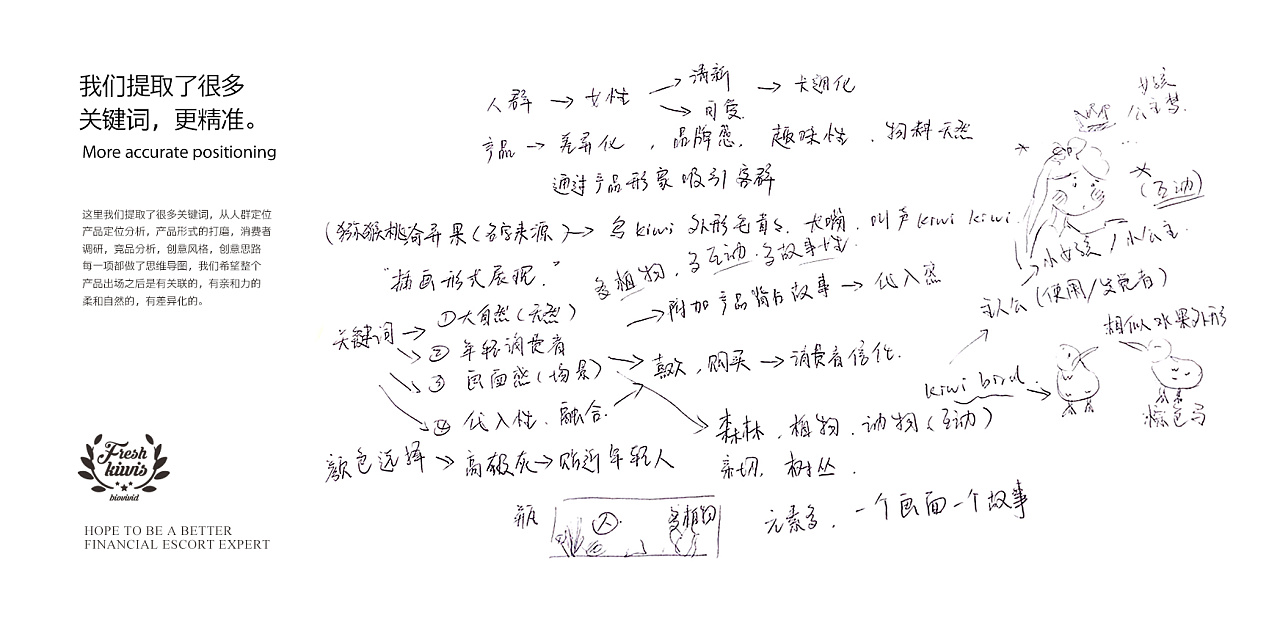 我们提取了很多
关键词，更精准。
More accurate positioning
这里我们提取了很多关键词，从人群定位
产品定位分析，产品形式的打磨，消费者
调研，竞品分析，创意风格，创意思路
每一项都做了思维导图，我们希望整个
产品出场之后是有关联的，有亲和力的
柔和自然的，有差异化的。
Fresh
kiwis
biovivid
HOPE TO BE A BETTER
FINANCIAL ESCORT EXPERT
人群 → 女性 → 清新 → 卡通化
→ 可爱
产品 → 差异化，品牌感，趣味性，物料天然
通过产品形象吸引客群
(猕猴桃奇异果(名字来源) → 鸟kiwi 外形毛茸茸、大嘴，叫声kiwi kiwi.
"插画形式展现."
多植物，多互动，多故事性.
关键词 → ①大自然(天然)
→ 附加产品背后故事 → 代入感
② 年轻消费者
③ 画面感(场景) → 喜欢，购买 → 消费者信任.
④ 代入性、融合.
森林，植物，动物(互动)
亲切，树丛.
颜色选择 → 高级灰 → 贴近年轻人
瓶
人
多植物
元素多，一个画面一个故事
女孩
公主梦.
(互动)
小女孩/小公主.
主人公(使用/受宠者)
相似水果外形
kiwi bird.